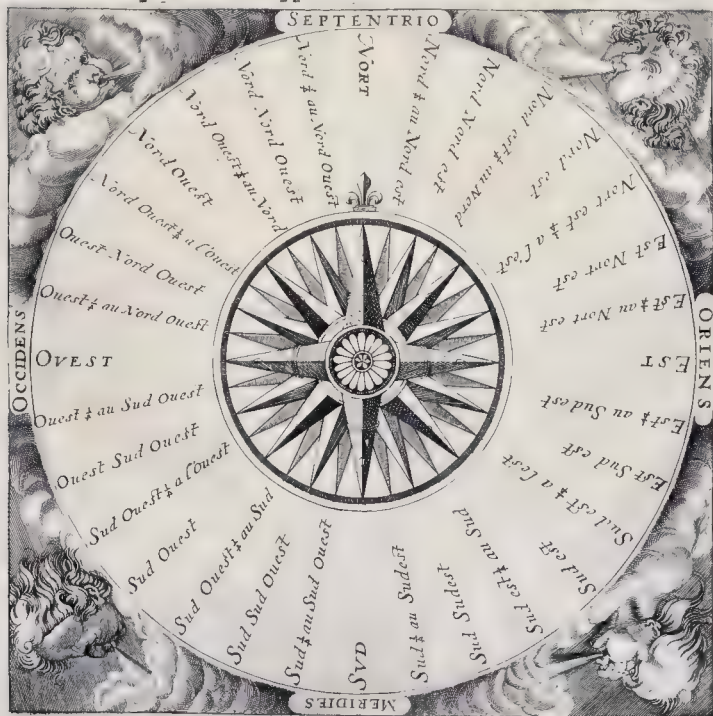 SEPTENTRIO
NORT
Nord ¼ au Nord est
Nord Nord est
Nord est ¼ au Nord
Nord est
Nort est ¼ a l'est
Est Nort est
Est ¼ au Nort est
EST
ORIENS
Est ¼ au Sud est
Est Sud est
Sud est ¼ a l'est
Sud est
Sud est ¼ au Sud
Sud Sudest
Sud ¼ au Sudest
SVD
MERIDIES
Sud ¼ au Sud Ouest
Sud Sud Ouest
Sud Ouest ¼ au Sud
Sud Ouest
Sud Ouest ¼ a l'ouest
Ouest Sud Ouest
Ouest ¼ au Sud Ouest
OVEST
OCCIDENS
Ouest ¼ au Nord Ouest
Ouest Nord Ouest
Nord Ouest ¼ a l'ouest
Nord Ouest
Nord Ouest ¼ au Nord
Nord Nord Ouest
Nord ¼ au Nord Ouest